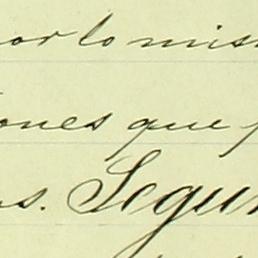 por lo mis
ones que p
s. Segun